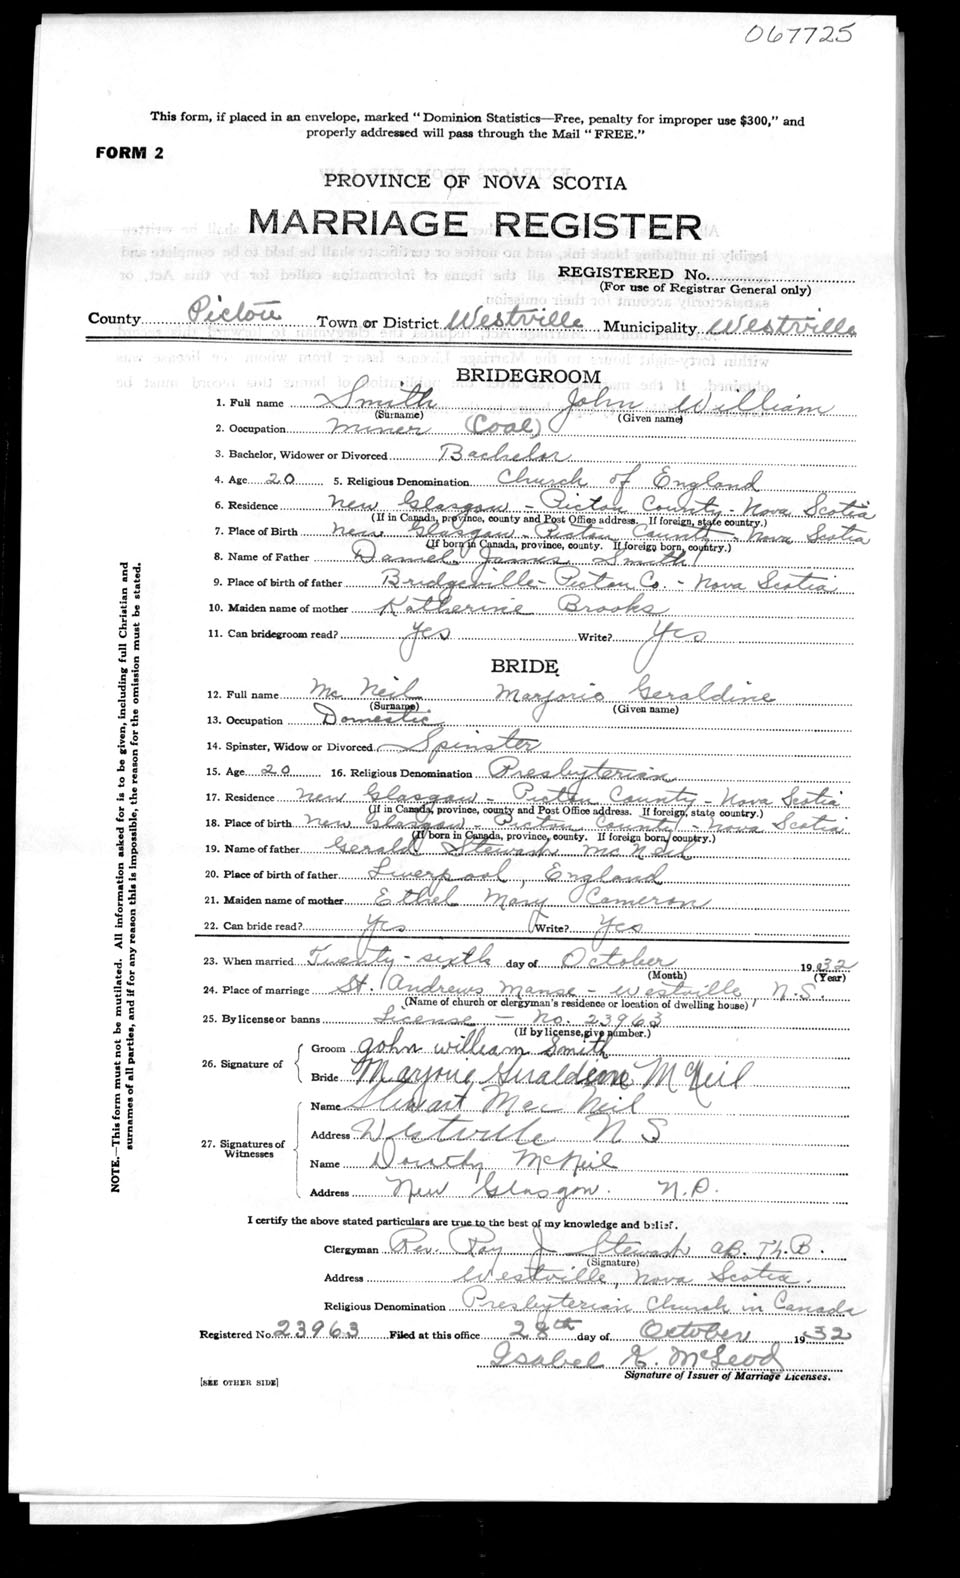 067725
This form, if placed in an envelope, marked "Dominion Statistics—Free, penalty for improper use $300," and
properly addressed will pass through the Mail "FREE."
FORM 2
PROVINCE OF NOVA SCOTIA
MARRIAGE REGISTER
REGISTERED No.
(For use of Registrar General only)
County Pictou Town or District Westville Municipality Westville
BRIDEGROOM
1. Full name Smith John William
(Surname) (Given name)
2. Occupation Miner (Coal)
3. Bachelor, Widower or Divorced Bachelor
4. Age 20 5. Religious Denomination Church of England
6. Residence New Glasgow - Pictou County - Nova Scotia
(If in Canada, province, county and Post Office address. If foreign, state country.)
7. Place of Birth New Glasgow - Pictou County - Nova Scotia
(If born in Canada, province, county. If foreign born, country.)
8. Name of Father Daniel James Smith
9. Place of birth of father Bridgeville - Pictou Co. - Nova Scotia
10. Maiden name of mother Katherine Brooks
11. Can bridegroom read? Yes Write? Yes
BRIDE
12. Full name Mc Neil Marjorie Geraldine
(Surname) (Given name)
13. Occupation Domestic
14. Spinster, Widow or Divorced Spinster
15. Age 20 16. Religious Denomination Presbyterian
17. Residence New Glasgow - Pictou County - Nova Scotia
(If in Canada, province, county and Post Office address. If foreign, state country.)
18. Place of birth New Glasgow - Pictou County - Nova Scotia
(If born in Canada, province, county. If foreign born, country.)
19. Name of father Gerald Stewart Mc Neil
20. Place of birth of father Liverpool, England
21. Maiden name of mother Ethel Mary Cameron
22. Can bride read? Yes Write? Yes
23. When married Twenty-sixth day of October 1932
(Month) (Year)
24. Place of marriage St. Andrews Manse - Westville N.S.
(Name of church or clergyman's residence or location of dwelling house)
25. By license or banns License - No. 23963
(If by license, give number.)
26. Signature of
Groom John William Smith
Bride Marjorie Geraldine McNeil
27. Signatures of Witnesses
Name Stewart Mac Neil
Address Westville N S
Name Dorothy McNeil
Address New Glasgow. N.S.
I certify the above stated particulars are true to the best of my knowledge and belief.
Clergyman Rev. Ray J Stewart AB. Th.B.
(Signature)
Address Westville, Nova Scotia.
Religious Denomination Presbyterian Church in Canada
Registered No. 23963 Filed at this office 28th day of October 1932
Isabel K. McLeod
Signature of Issuer of Marriage Licenses.
[SEE OTHER SIDE]
NOTE.—This form must not be mutilated. All information asked for is to be given, including full Christian and
surnames of all parties, and if for any reason this is impossible, the reason for the omission must be stated.